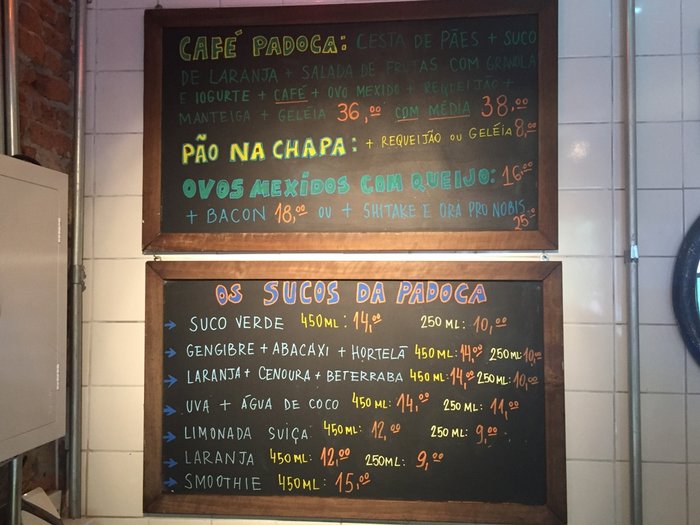 CAFÉ PADOCA: CESTA DE PÃES + SUCO
DE LARANJA + SALADA DE FRUTAS COM GRANOLA
E IOGURTE + CAFÉ + OVO MEXIDO + REQUEIJÃO +
MANTEIGA + GELÉIA 36,00 COM MÉDIA 38,00
PÃO NA CHAPA: + REQUEIJÃO OU GELÉIA 8,00
OVOS MEXIDOS COM QUEIJO: 16,00
+ BACON 18,00 OU + SHITAKE E ORA PRO NOBIS
25,00
OS SUCOS DA PADOCA
→ SUCO VERDE 450ML: 14,00 250ML: 10,00
→ GENGIBRE + ABACAXI + HORTELÃ 450ML: 14,00 250ML: 10,00
→ LARANJA + CENOURA + BETERRABA 450ML: 14,00 250ML: 10,00
→ UVA + ÁGUA DE COCO 450ML: 14,00 250ML: 11,00
→ LIMONADA SUIÇA 450ML: 12,00 250ML: 9,00
→ LARANJA 450ML: 12,00 250ML: 9,00
→ SMOOTHIE 450ML: 15,00